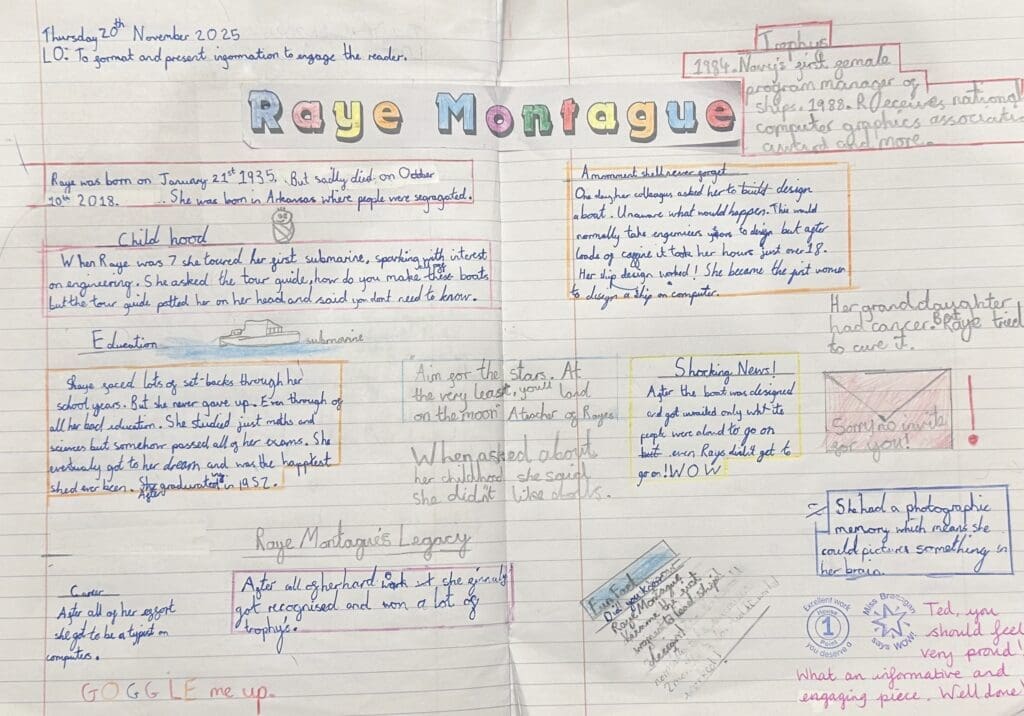 Thursday 20th November 2025
LO: To format and present information to engage the reader.
Raye Montague
Trophys
1984. Navy's first female
program manager of
ships. 1988. Receives national
computer graphics associatio
award and more.
Raye was born on January 21st 1935. But sadly died on October
10th 2018. She was born in Arkansas where people were segregated.
Child hood
When Raye was 7 she toured her first submarine, sparking with interest
on engineering. She asked the tour guide, how do you make all of these boats
but the tour guide patted her on her head and said you dont need to know.
Education
submarine
Raye faced lots of set-backs through her
school years. But she never gave up. Even through of
all her bad education. She studied just maths and
sciences but somehow passed all of her exams. She
eventualy got to her dream and was the happiest
shed ever been. She graduated in 1952.
"Aim for the stars. At
the very least, you'll land
on the moon" A teacher of Rayes
When asked about
her childhood she said
she didn't like dolls.
Raye Montague's Legacy
After all of her hard work it she finnaly
got recognised and won a lot of
trophy's.
Career
After all of her effort
she got to be a typist on
computers.
GOGGLE me up.
A momment shell never forget
One day her colleagus asked her to build design
a boat. Unaware what would happen. This would
normally take engerniers years to design but after
loads of caffine it took her hours just over 18.
Her ship design worked! She became the first women
to design a ship on computer.
Her granddaughter
had cancer. But Raye tried
to cure it.
Shocking News!
After the boat was designed
and got unvailed only white
people were aloud to go on
but even Raye didn't get to
go on! WOW
Sorry no invite
for you!
!
She had a photographic
memory which means she
could picture something in
her brain.
Fun Fact
Did you know
Raye Montague
became the first
women to lead ship
design!
Excellent work
House
1
Point
you deserve a
Miss Brannigan
says WOW!
Ted, you
should feel
very proud!
What an informative and
engaging piece. Well done!